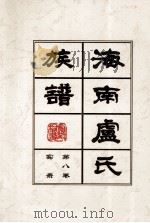 海南盧氏
族譜
第八卷